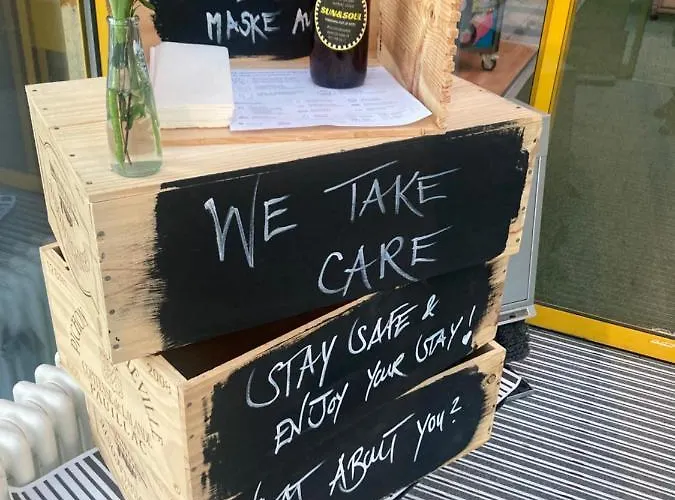 MASKE AU
SUN&SOUL
WE TAKE
CARE
STAY SAFE &
ENJOY YOUR STAY!
AT ABOUT YOU?
PICHON
PAUILLAC